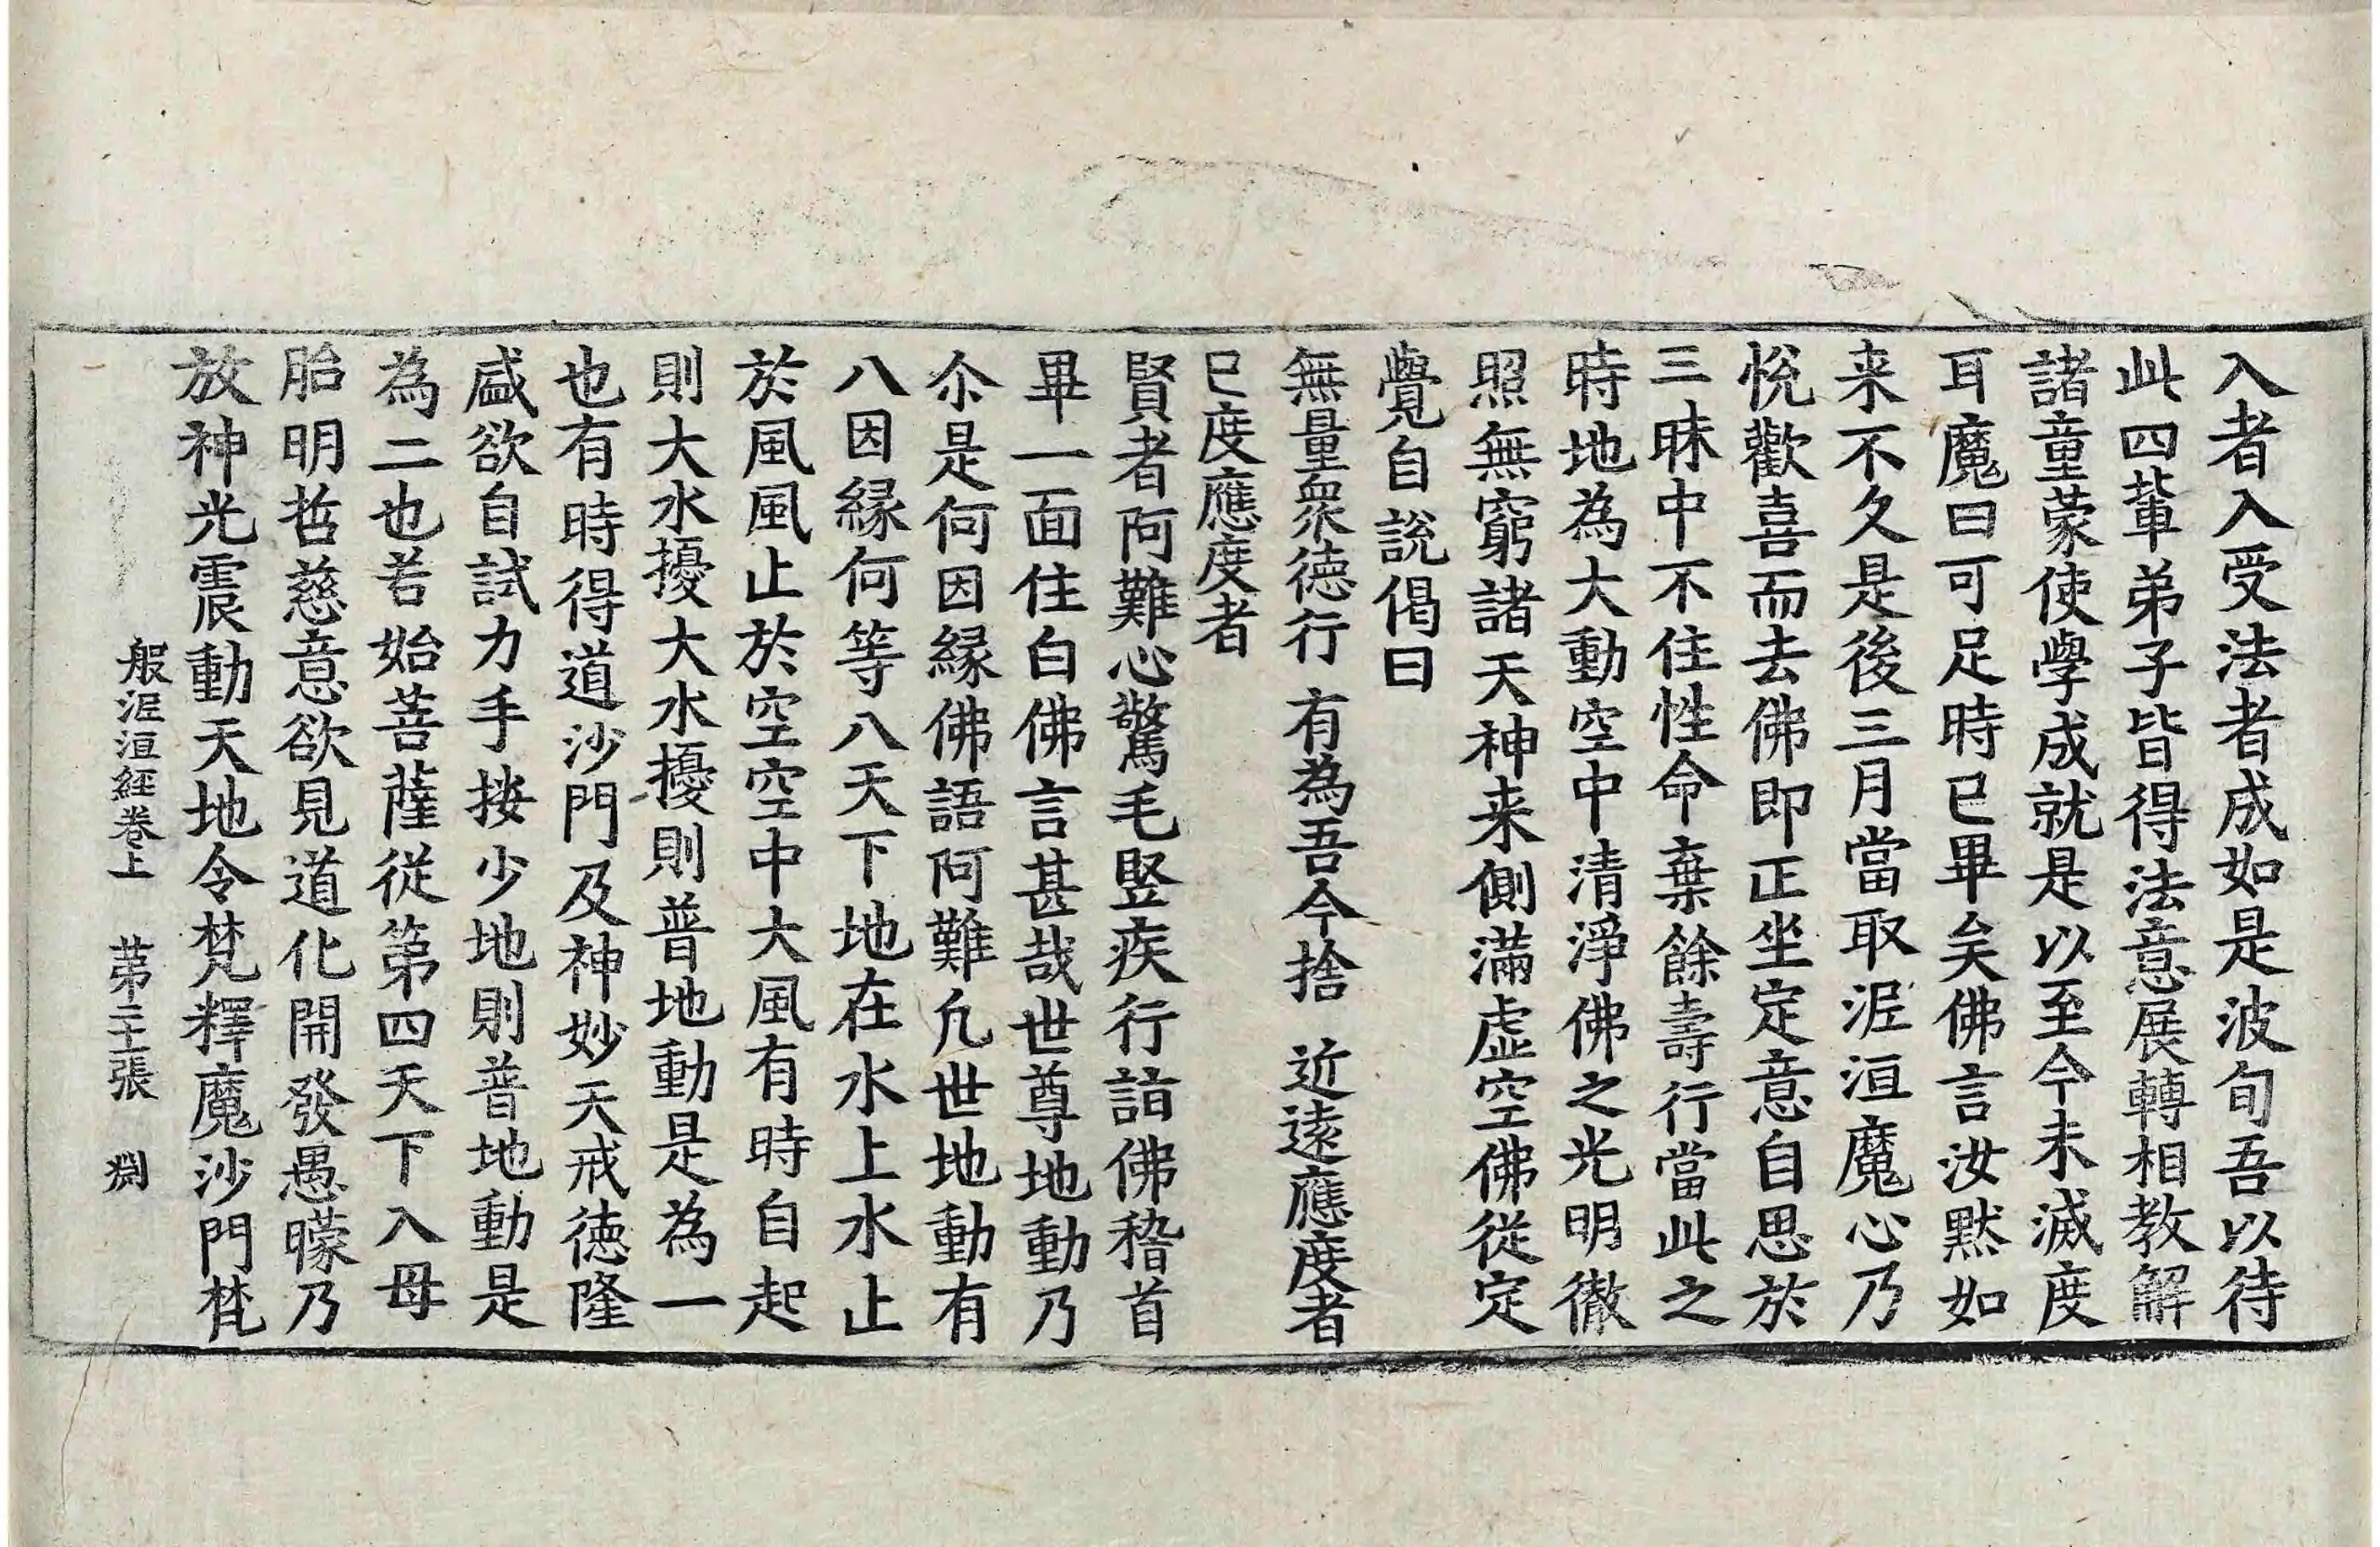 入者入受法者成如是波旬吾以待
此四軰弟子皆得法意展轉相教解
諸童蒙使學成就是以至今未滅度
耳魔曰可足時已畢矣佛言汝默如
来不久是後三月當取泥洹魔心乃
悅歡喜而去佛即正坐定意自思於
三昧中不住性命棄餘壽行當此之
時地為大動空中清淨佛之光明徹
照無窮諸天神来側滿虛空佛從定
覺自說偈曰
無量衆德行　有為吾今捨　近遠應度者
已度應度者
賢者阿難心驚毛竪疾行詣佛稽首
畢一面住白佛言甚哉世尊地動乃
尒是何因緣佛語阿難凡世地動有
八因緣何等八天下地在水上水止
於風風止於空空中大風有時自起
則大水擾大水擾則普地動是為一
也有時得道沙門及神妙天戒德隆
盛欲自試力手按少地則普地動是
為二也若始菩薩從第四天下入母
胎明哲慈意欲見道化開發愚曚乃
放神光震動天地令梵釋魔沙門梵
般泥洹經卷上　第二十張　渕